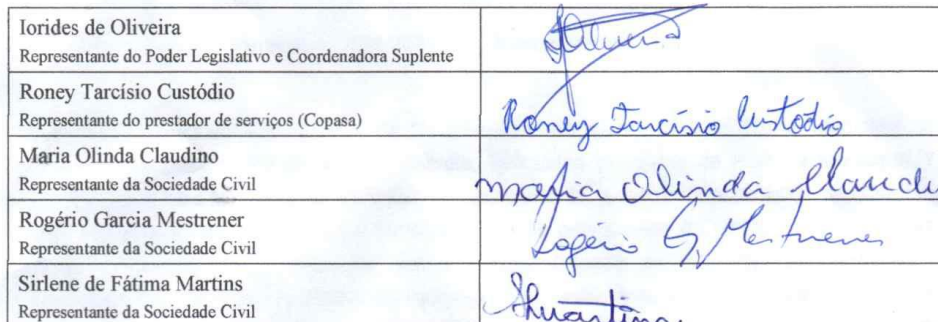 Iorides de Oliveira
Representante do Poder Legislativo e Coordenadora Suplente
Roney Tarcísio Custódio
Representante do prestador de serviços (Copasa)
Roney Tarcísio Custódio
Maria Olinda Claudino
Representante da Sociedade Civil
Maria Olinda Claudi
Rogério Garcia Mestrener
Representante da Sociedade Civil
Rogério G Mestrener
Sirlene de Fátima Martins
Representante da Sociedade Civil